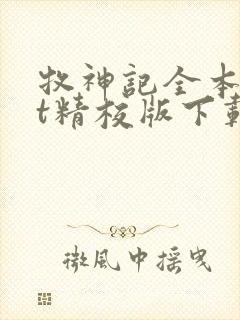 牧神記全本
t精校版下載
微風中搖曳